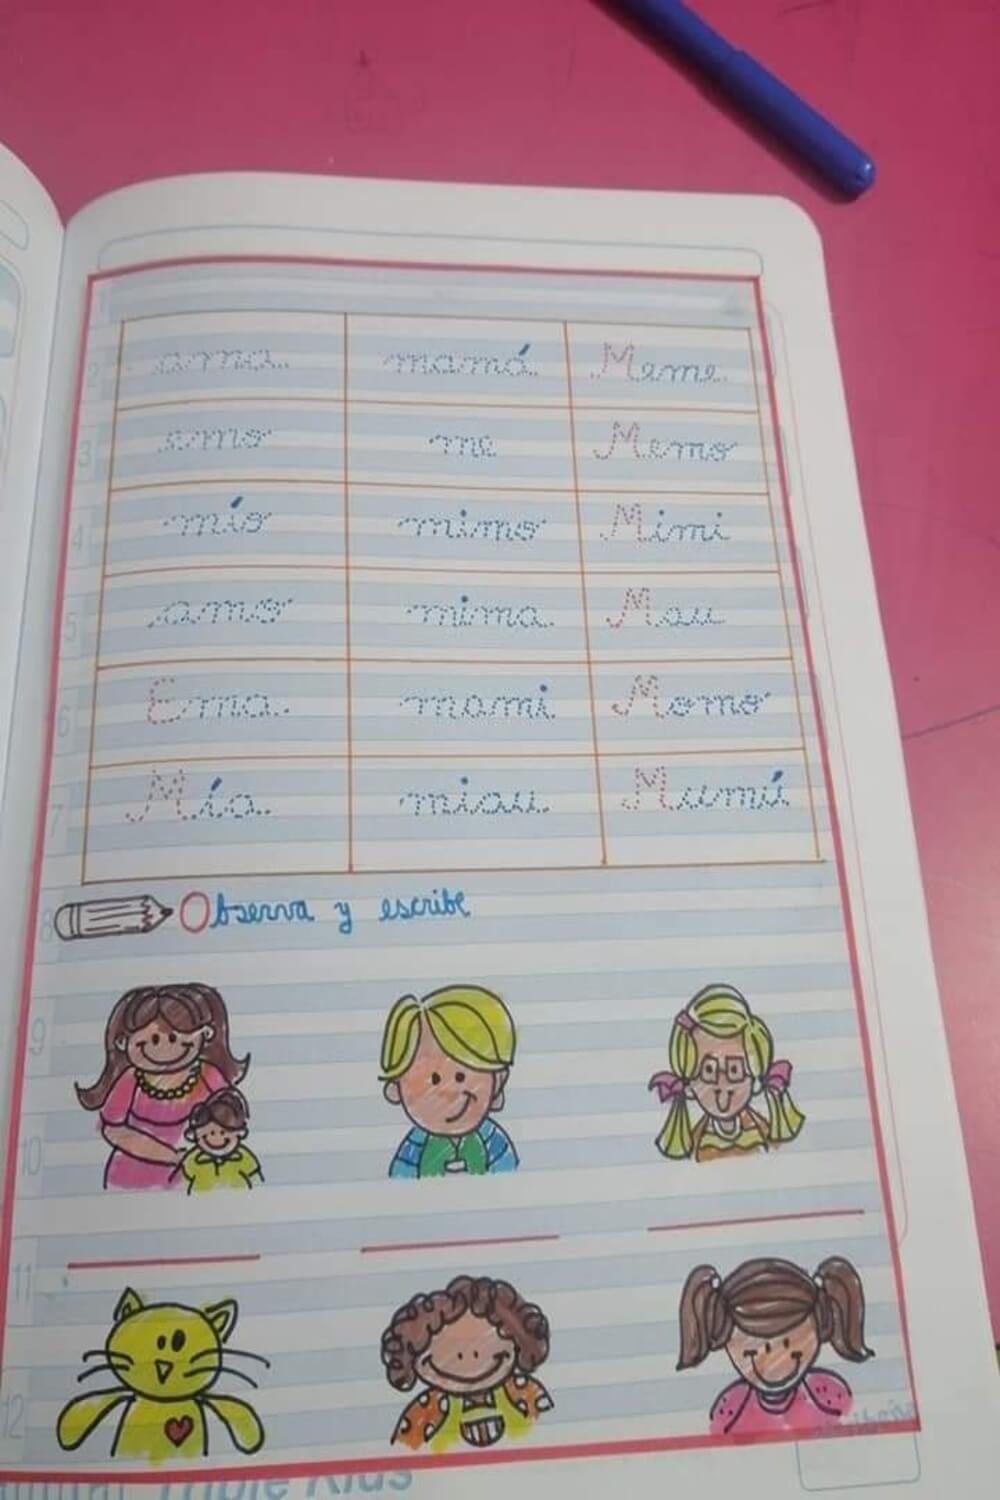 ama mamá Meme
amo me Memo
mío mimo Mimi
amo mima Mau
Ema mami Momo
Mía miau Mumú
Observa y escribe
Triple Kids
2
3
4
5
6
7
8
9
10
11
12